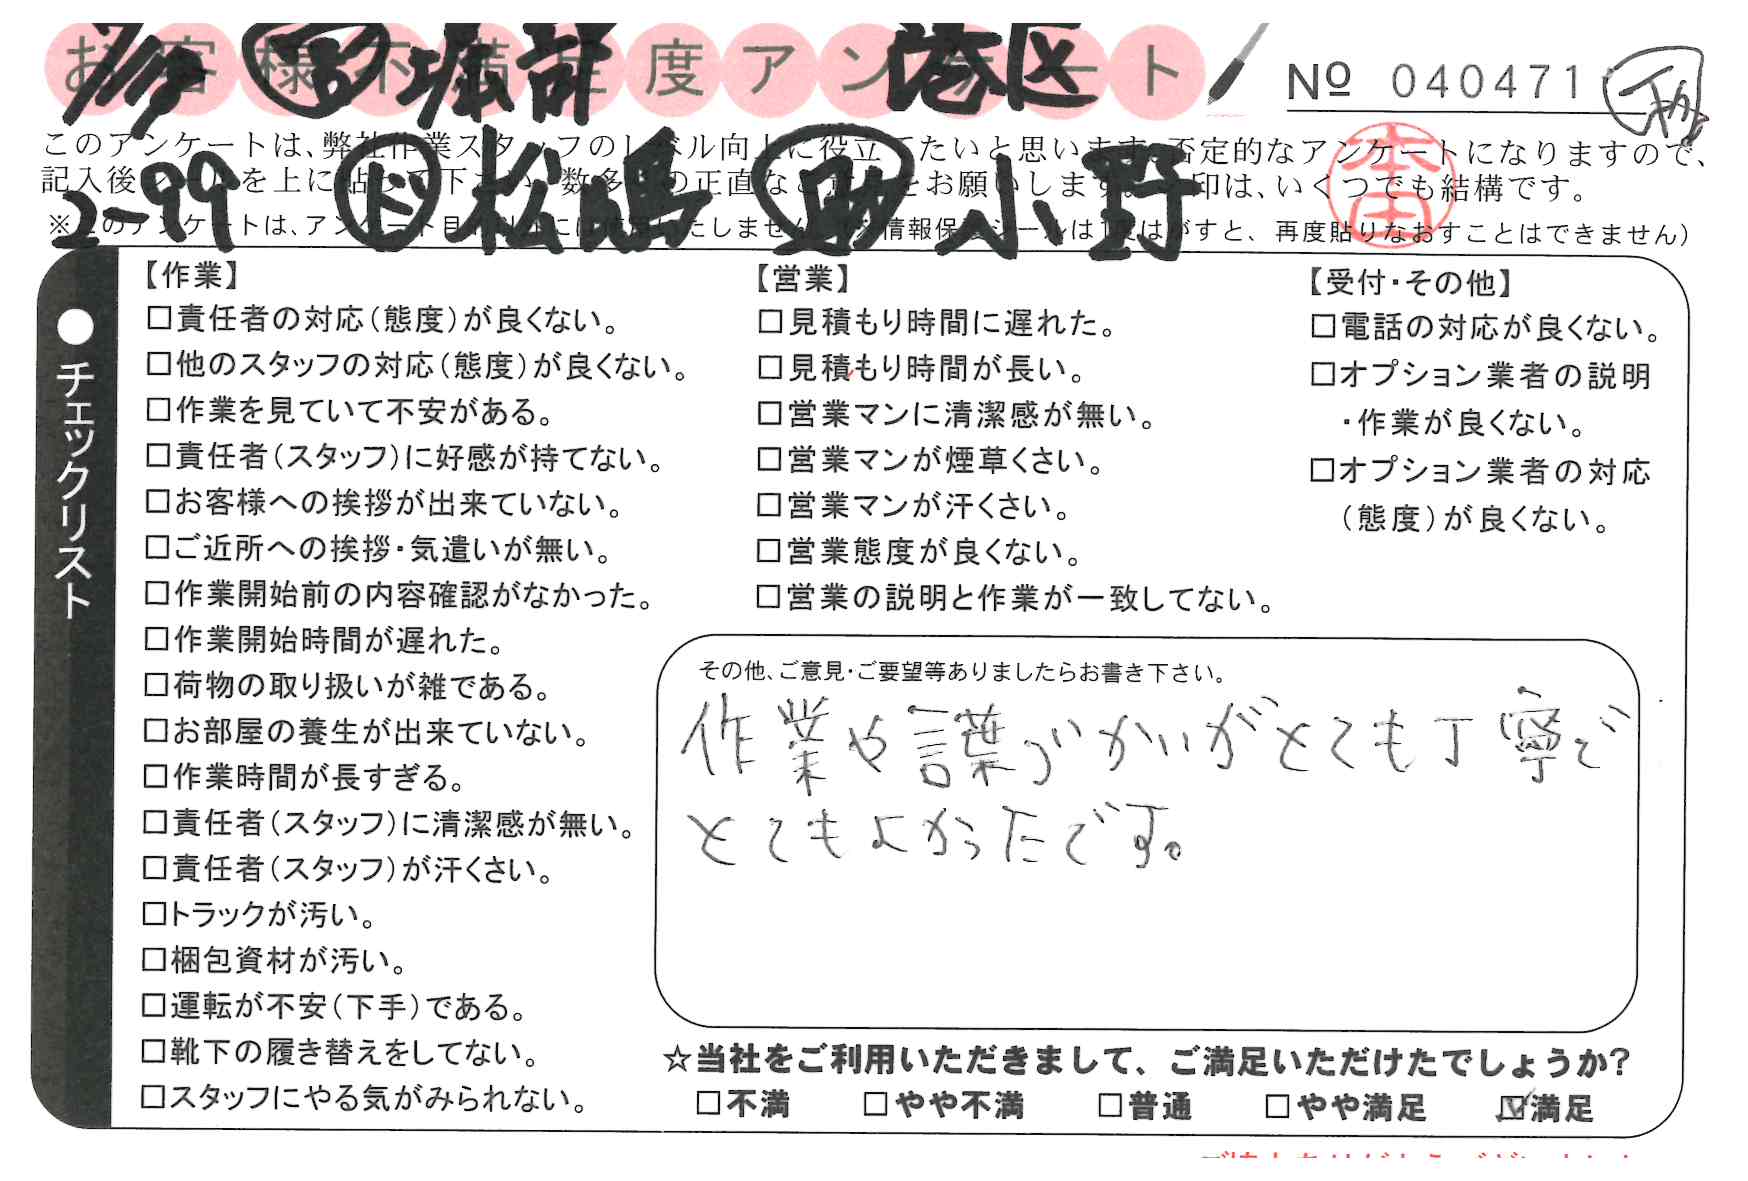 お客様不満足度アンケート
堀部 港区
№ 040471
このアンケートは、弊社作業スタッフのレベル向上に役立てたいと思います。否定的なアンケートになりますので、
記入後シールを上に貼って下さい。数多くの正直なご意見をお願いします。 印は、いくつでも結構です。
2-99 ド 松嶋 助 小野
本田
※このアンケートは、アンケート目的以外には使用いたしません。(情報保護シールは1度はがすと、再度貼りなおすことはできません)
●チェックリスト
【作業】
□責任者の対応(態度)が良くない。
□他のスタッフの対応(態度)が良くない。
□作業を見ていて不安がある。
□責任者(スタッフ)に好感が持てない。
□お客様への挨拶が出来ていない。
□ご近所への挨拶・気遣いが無い。
□作業開始前の内容確認がなかった。
□作業開始時間が遅れた。
□荷物の取り扱いが雑である。
□お部屋の養生が出来ていない。
□作業時間が長すぎる。
□責任者(スタッフ)に清潔感が無い。
□責任者(スタッフ)が汗くさい。
□トラックが汚い。
□梱包資材が汚い。
□運転が不安(下手)である。
□靴下の履き替えをしてない。
□スタッフにやる気がみられない。
【営業】
□見積もり時間に遅れた。
□見積もり時間が長い。
□営業マンに清潔感が無い。
□営業マンが煙草くさい。
□営業マンが汗くさい。
□営業態度が良くない。
□営業の説明と作業が一致してない。
【受付・その他】
□電話の対応が良くない。
□オプション業者の説明
・作業が良くない。
□オプション業者の対応
(態度)が良くない。
その他、ご意見・ご要望等ありましたらお書き下さい。
作業や言葉づかいがとても丁寧で
とてもよかったです。
☆当社をご利用いただきまして、ご満足いただけたでしょうか?
□不満 □やや不満 □普通 □やや満足 ☑満足